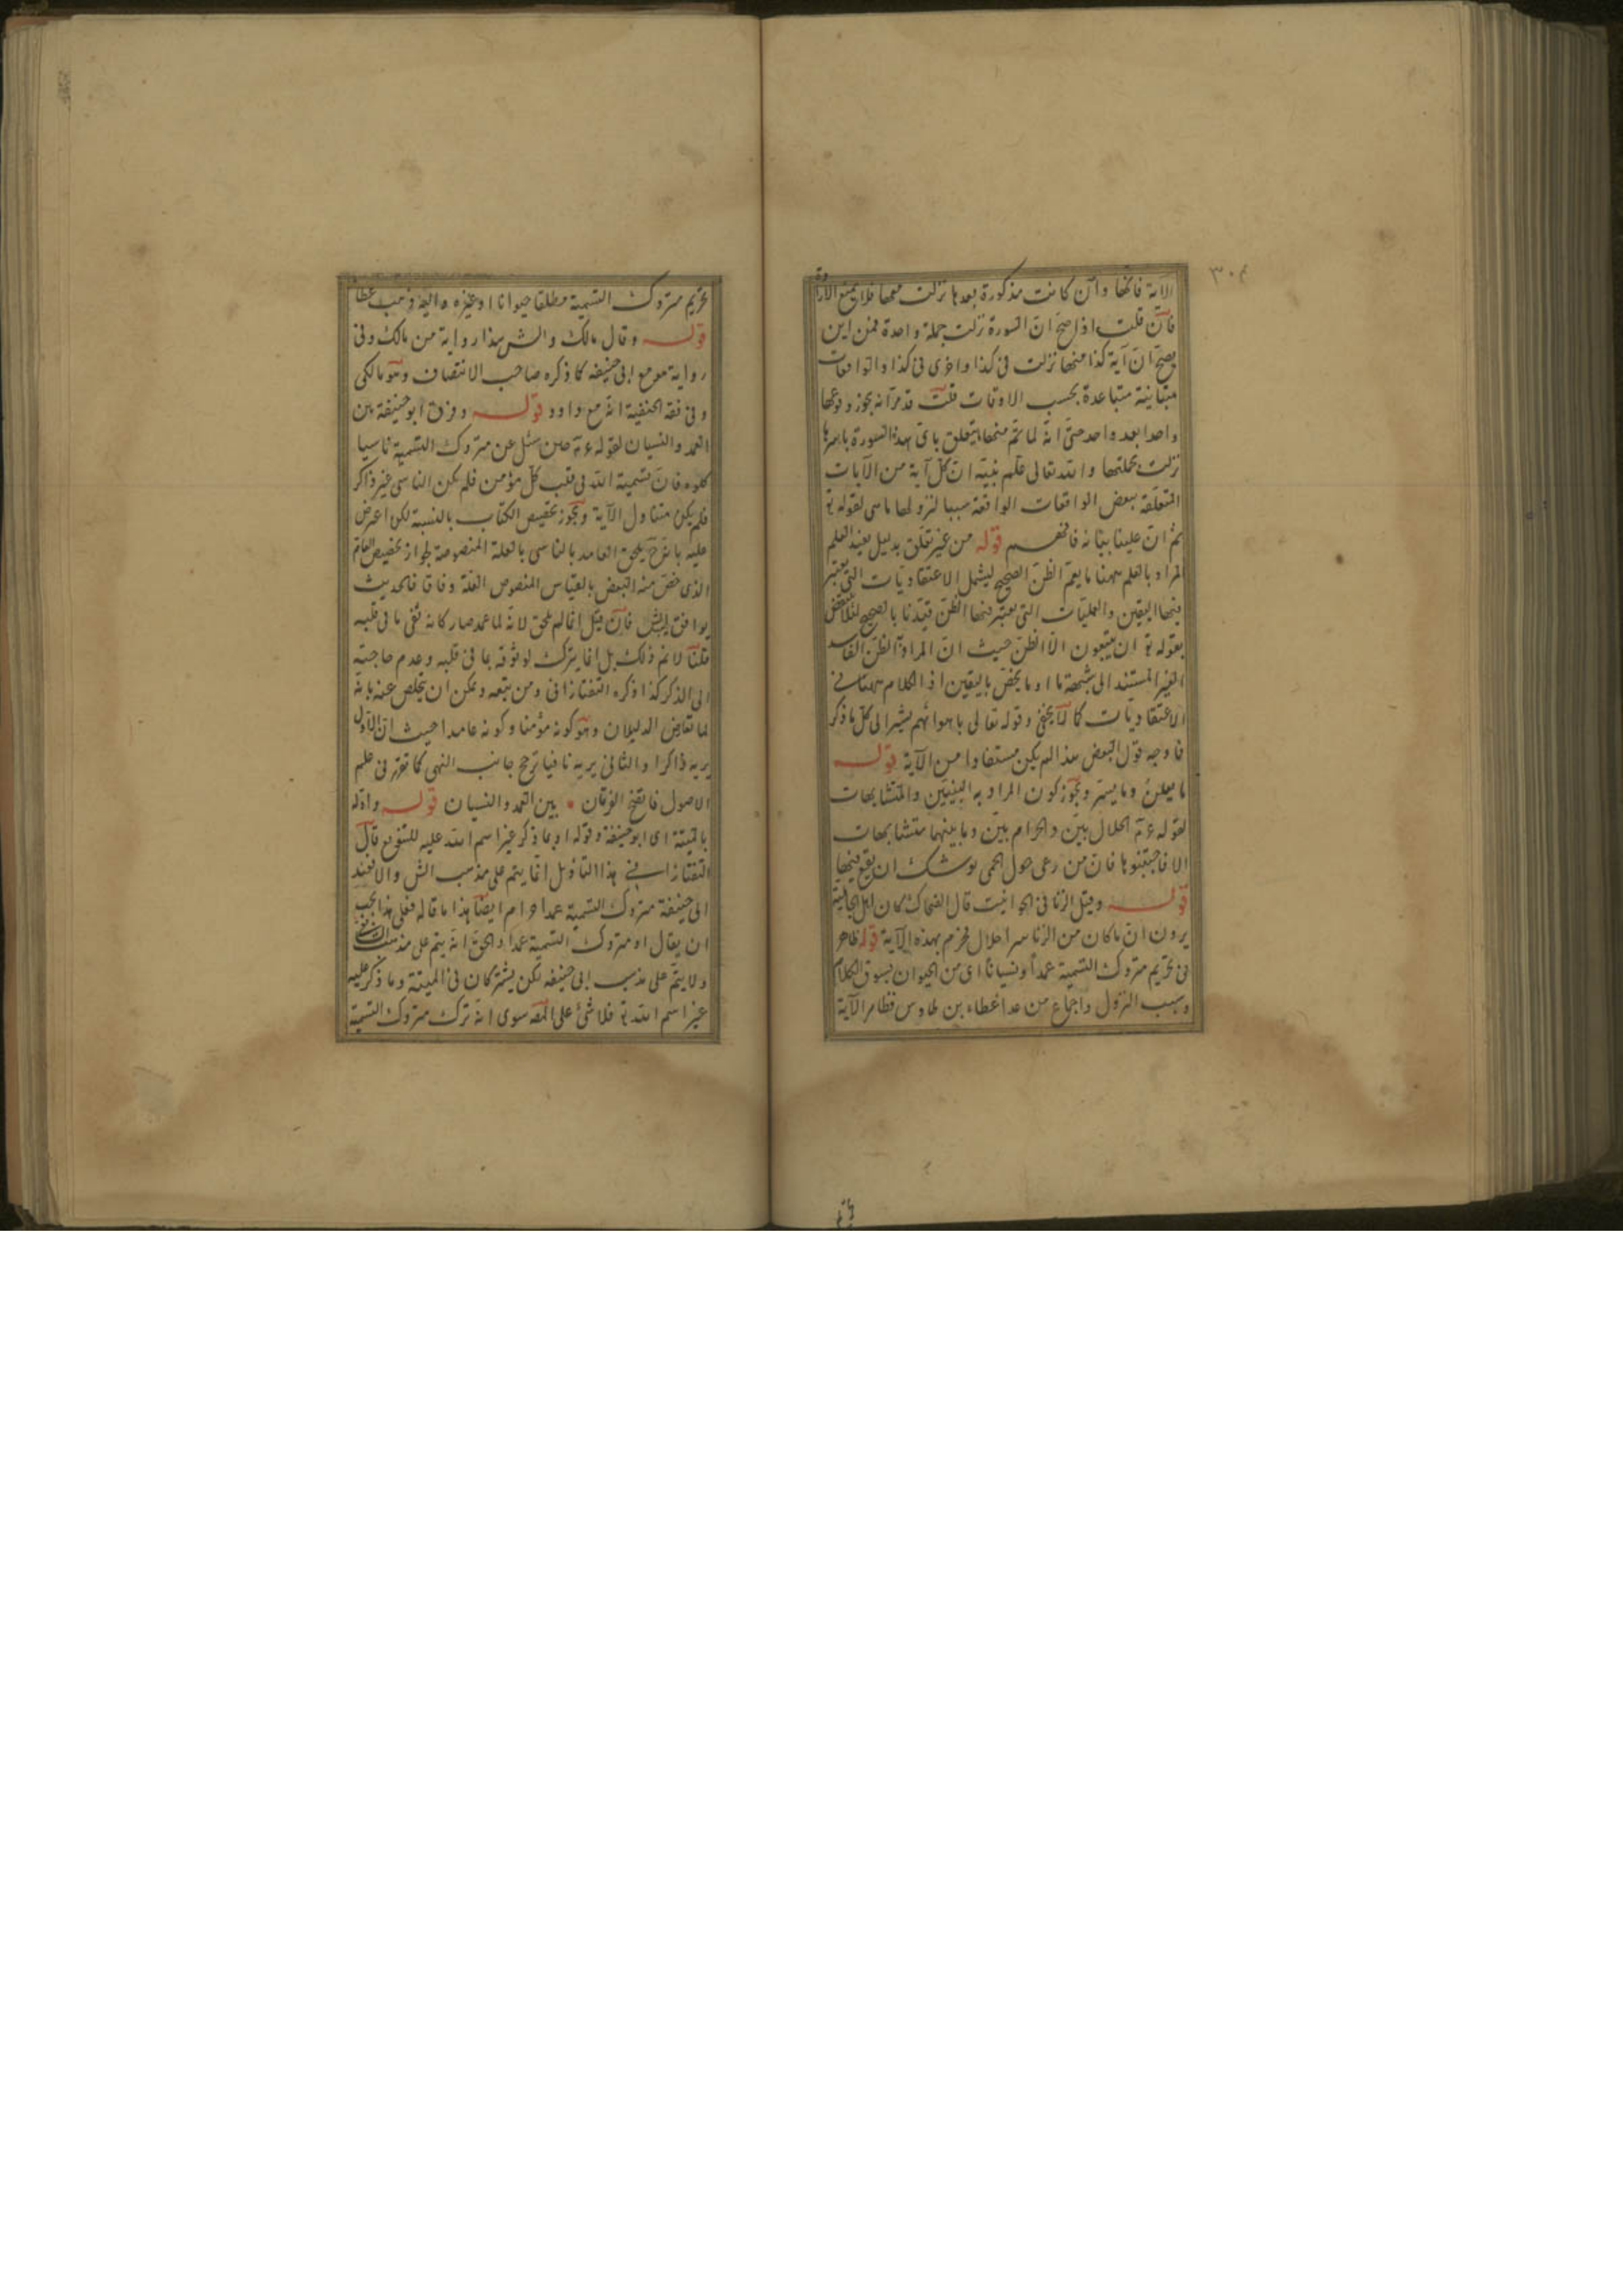 ٣٠٤
الآية فانها وان كانت مذكورة بعدها نزلت معها فلا يمنع الارادة
فان قلت اذا صح ان السورة نزلت جملة واحدة فمن اين
يصح ان آية كذا منها نزلت فى كذا واخرى فى كذا والواقعات
متباينة متباعدة بحسب الاوقات قلت قد مر انه يجوز وقوعها
واحدا بعد واحد حتى انه لما تم منها ما يتعلق باى هذه السورة باسرها
نزلت بجملتها والله تعالى علم نبيه ان كل آية من الآيات
المتعلقة ببعض الواقعات الواقعة سببا لنزولها ما سى لقوله تع
ثم ان علينا بيانه فافهم قوله من غير تعلق بدليل يفيد العلم
المراد بالعلم ههنا ما يعم الظن الصحيح ليشمل الاعتقاديات التى يعتبر
فيها اليقين والعمليات التى يعتبر فيها الظن قيدنا بالصحيح لئلا ينقض
بقوله تع ان يتبعون الا الظن حيث ان المراد الظن الفاسد
الغير المستند الى شبهة ما او ما يخص باليقين اذ الكلام ههنا فى
الاعتقاديات كما لا يخفى وقوله تعالى باهوائهم يشير الى كل ما ذكر
فا وجه قول البعض هذا لم يكن مستفادا من الآية قوله
ما يعلن وما يسر ويجوز كون المراد به البينين والمتشابهات
لقوله ع م الحلال بين والحرام بين وما بينهما متشابهات
الا فاجتنبوها فان من رعى حول الحمى يوشك ان يقع فيها
قوله وقيل الزنا فى الحوانيت قال الضحاك كان اهل الجاهلية
يرون ان ما كان من الزنا سرا حلال فحرم بهذه الآية قوله ظاهر
فى تحريم متروك التسمية عمدا ونسيانا اى من الحيوان بسوق الكلام
وسبب النزول واجماع من عدا عطاء بن طاوس فظاهر الآية
تحريم متروك التسمية مطلقا حيوانا او غيره واليه ذهب عطا
قوله وقال مالك والش هذا رواية من مالك وفى
رواية هو مع ابى حنيفه كما ذكره صاحب الانتصاف وهو مالكى
وفى فقه الحنفية انه مع داود قوله وفرق ابو حنيفة بين
العمد والنسيان لقوله ع م حين سئل عن متروك التسمية ناسيا
كلوه فان تسمية الله فى قلب كل مؤمن فلم يكن الناسى غير ذاكر
فلم يكن متناول الآية ويجوز تخصيص الكتاب بالنسبة لكن اعترض
عليه بانه ح يلحق العامد بالناسى بالعلة المنصوصة لجواز تخصيص العام
الذى خص منه البعض بالقياس المنصوص العلة وفاقا فالحديث
يوافق الش فان قيل انما لم يلحق لانه لما عمد صار كانه نفى ما فى قلبه
قلنا لا نم ذلك بل انما يترك لوثوقه بما فى قلبه وعدم حاجته
الى الذكر كذا ذكره التفتازانى ومن تبعه ويمكن ان يتخلص عنه بانه
لما تعارض الدليلان وهو كونه مؤمنا وكونه عامدا حيث ان الاول
يريه ذاكرا والثانى يريه نافيا ترجح جانب النهى كما تقرر فى علم
الاصول فاتضح الفرقان بين العمد والنسيان قوله واوله
بالميتة اى ابو حنيفة وقوله او بما ذكر غير اسم الله عليه للتنويع قال
التفتازانى هذا التأويل انما يتم على مذهب الش والا فعند
ابى حنيفة متروك التسمية عمدا حرام ايضا هذا ما قاله فعلى هذا يجب
ان يقال او متروك التسمية عمدا والحق انه يتم على مذهب الشافعى
ولا يتم على مذهب ابى حنيفه لكن يشتركان فى الميتة وما ذكر عليه
غير اسم الله تع فلا شئ على المص سوى انه ترك متروك التسمية